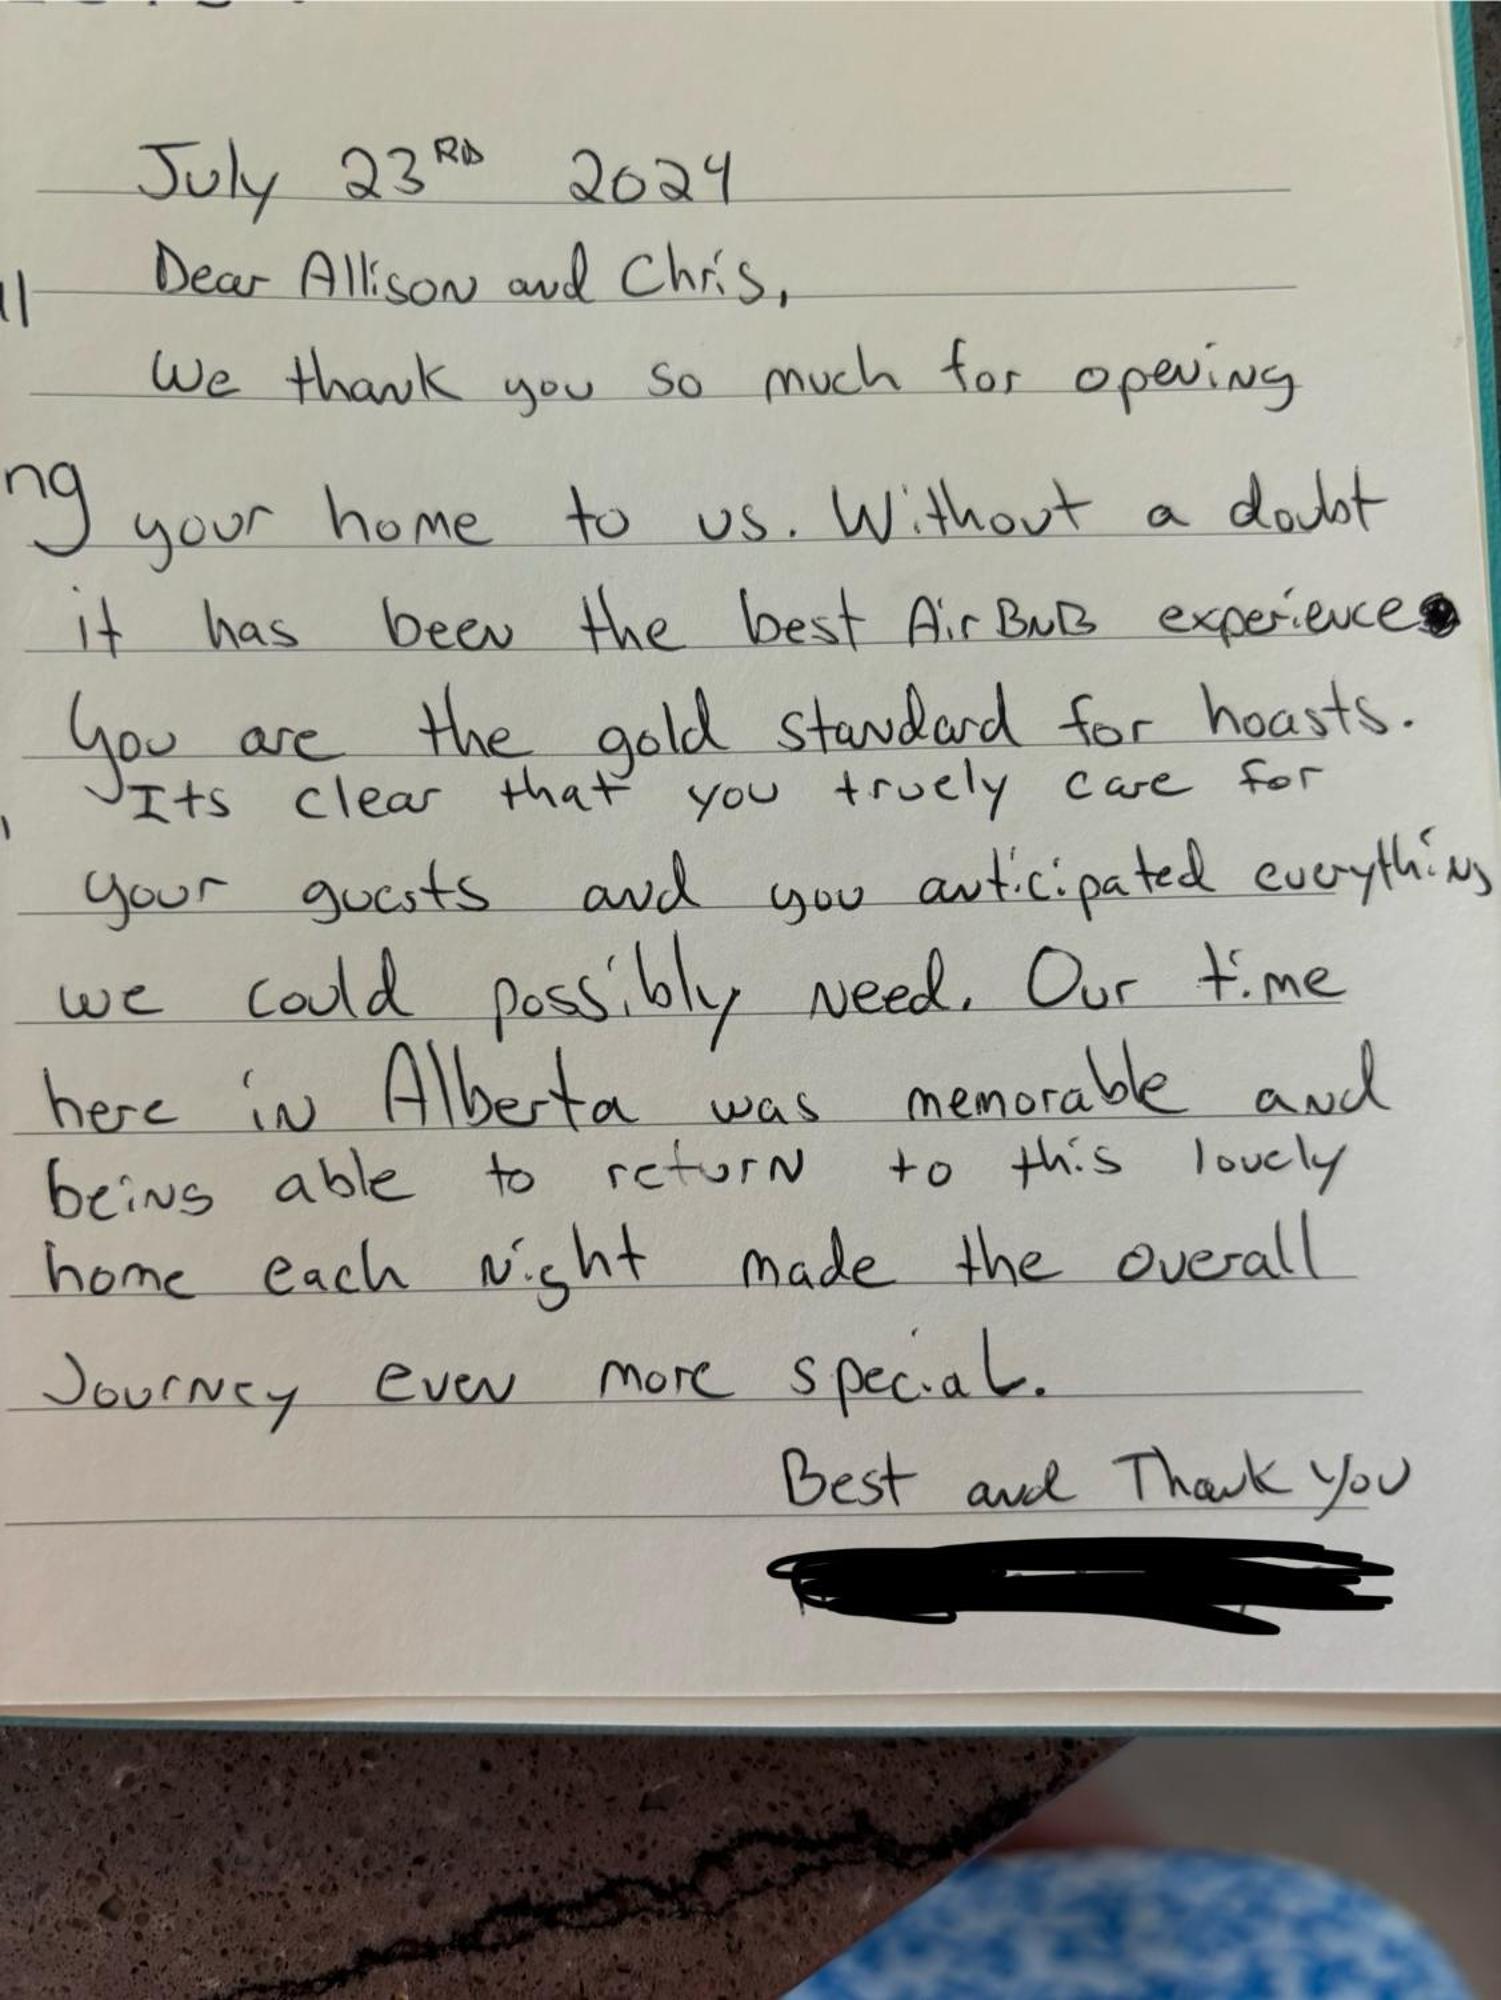 July 23RD 2024
Dear Allison and Chris,
We thank you so much for opening
your home to us. Without a doubt
it has been the best AirBNB experience
You are the gold standard for hoasts.
Its clear that you truely care for
your guests and you anticipated everything
we could possibly need. Our time
here in Alberta was memorable and
being able to return to this lovely
home each night made the overall
Journey even more special.
Best and Thank You